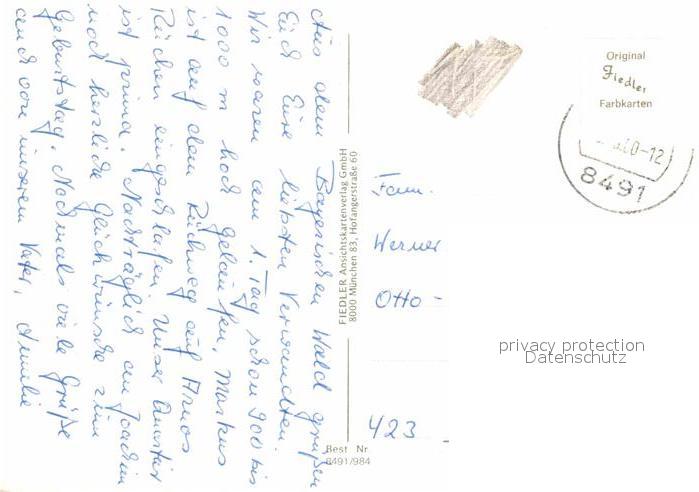 Aus dem Bayerischen Wald grüßen
Euch Eure liebsten Verwandten.
Wir waren am 1. Tag schon 900 bis
1000 m hoch gelaufen. Markus
ist auf dem Rückweg auf Arnos
Rücken eingeschlafen. Unser Quartier
ist prima. Nachträglich an Joachim
noch herzliche Glückwünsche zum
Geburtstag. Nochmals viele Grüße
auch von unserem Vater,
FIEDLER Ansichtskartenverlag GmbH
8000 München 83, Hofangerstraße 60
Best Nr.
8491/984
Original
Fiedler
Farbkarten
0-12
8491
Fam.
Werner
Otto-
privacy protection
Datenschutz
423